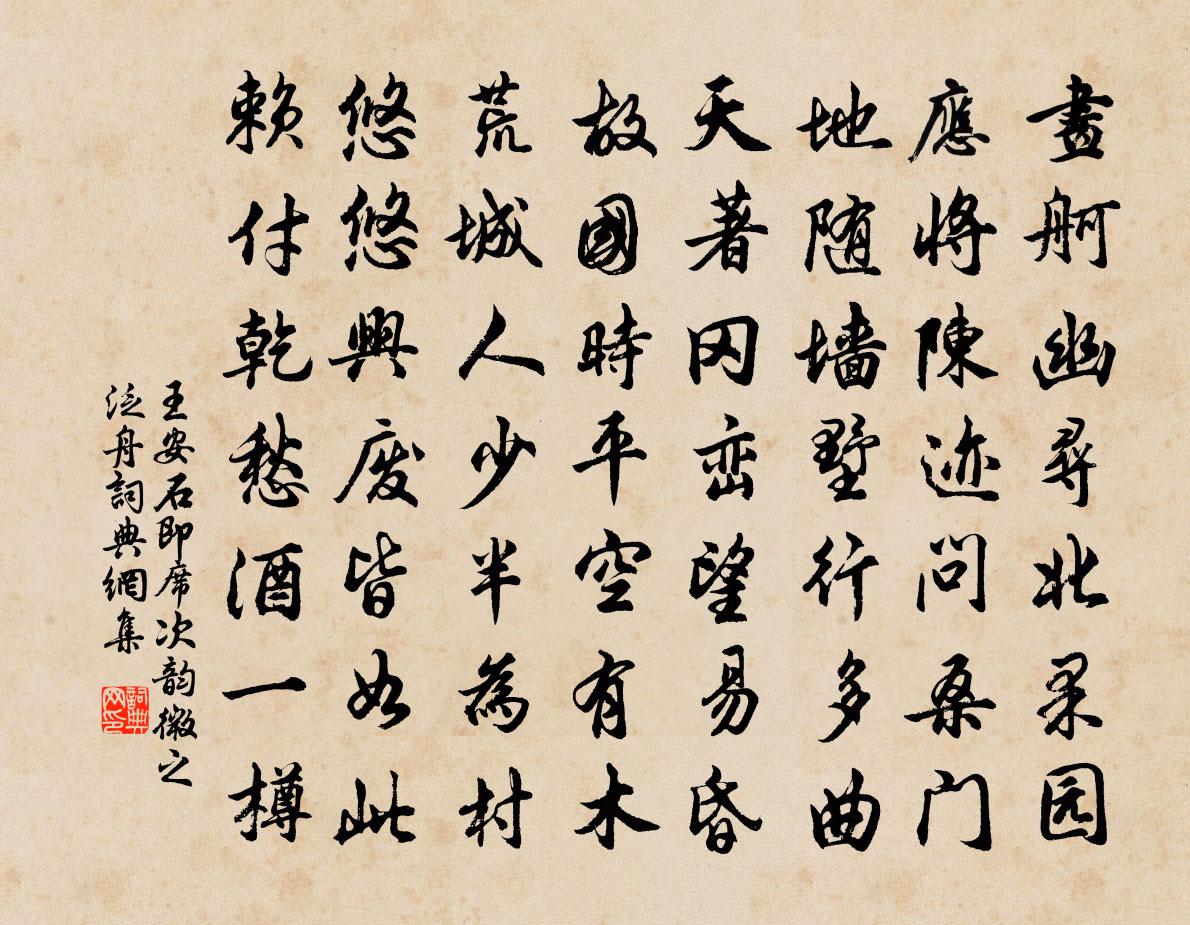 畫舸幽尋北果园
應将陳迹问桑门
地随墙墅行多曲
天著冈峦望易昏
故國時平空有木
荒城人少半為村
悠悠興废皆如此
赖付乾愁酒一樽
王安石即席次韵微之
泛舟詞典網集
詞典网印